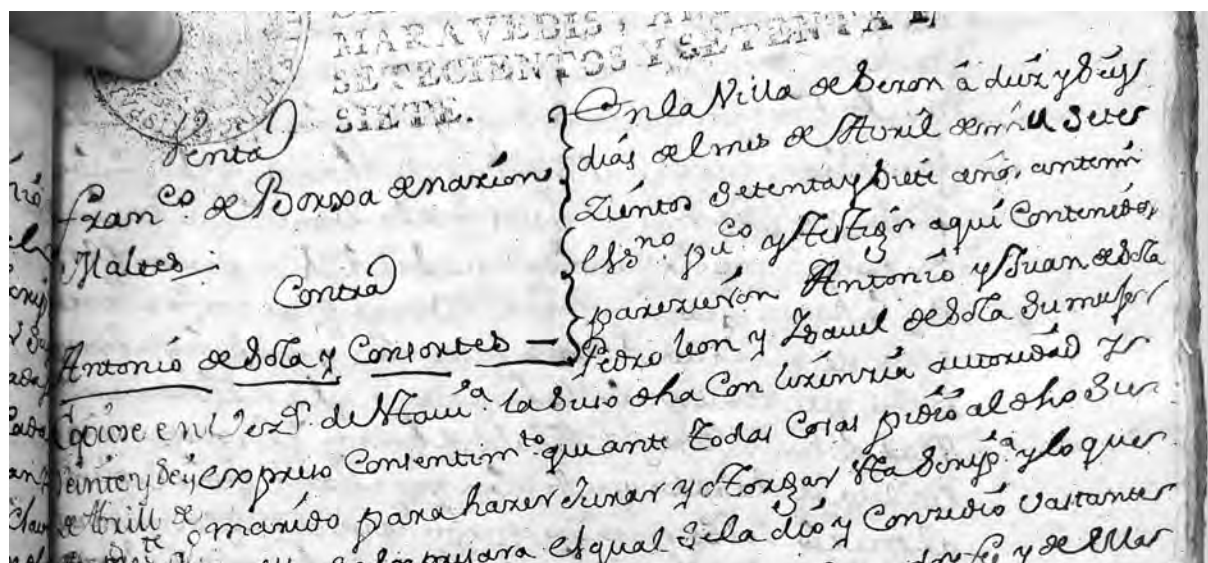 MARAVEDIS,
SETECIENTOS Y SETENTA Y
SIETE.
Venta
Fran.co de Borxa de nazion
Maltes
Contra
Antonio de Sola y Consortes
En la Villa de Seron á diez y seis
dias del mes de Avril de mil Sete
Zientos Setenta y Siete años antemi
el Ss.no pu.co y testigos aqui Contenidos
parezieron Antonio y Juan de Sola
Pedro Leon y Ysavel de Sola Su muger
la Suso dha Con lizenzia autoridad y
expreso Consentim.to que ante todas Cosas pidio al dho Su
marido para hazer Jurar y otorgar esta Scrip.a y lo que
el qual Se la dió y Conzedio vastante
y de ellas
Copiose en
Veinte y Seis
de Abrill de